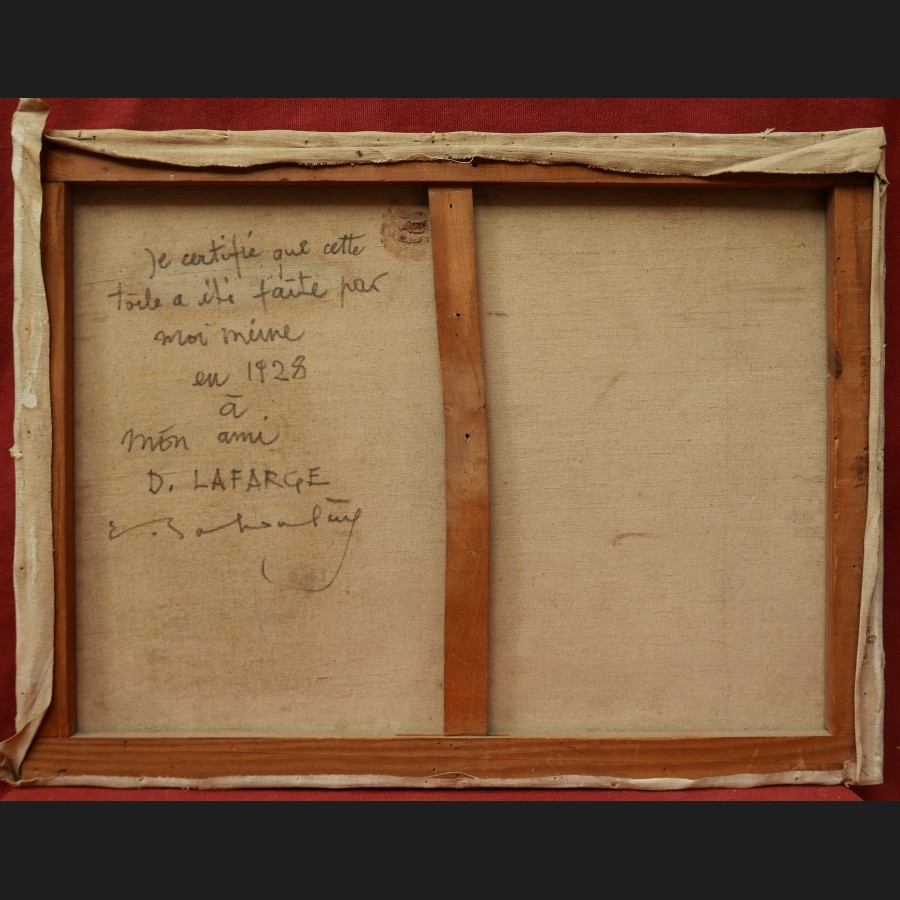 Je certifié que cette
toile a été faite par
moi même
en 1928
à
mon ami
D. LAFARGE